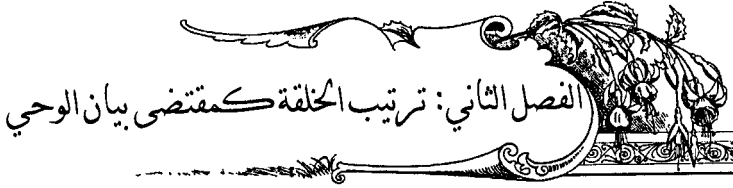 الفصل الثاني: ترتيب الخلقة كمقتضى بيان الوحي